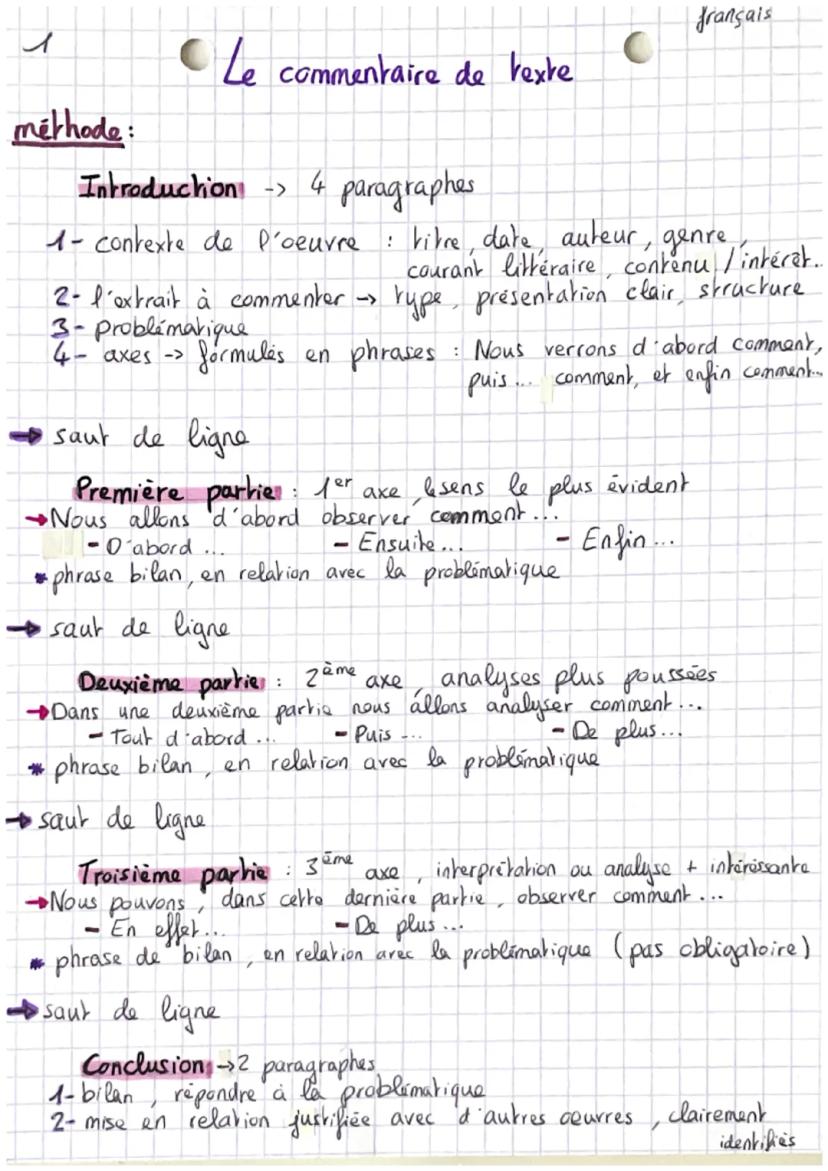 français
1
Le commentaire de texte
méthode :
Introduction -> 4 paragraphes
1- contexte de l'oeuvre : titre, date, auteur, genre,
courant littéraire, contenu / intérêt..
2- l'extrait à commenter -> type, présentation clair, structure
3- problématique
4- axes -> formulés en phrases : Nous verrons d'abord comment,
puis... comment, et enfin comment...
→ saut de ligne
Première partie : 1er axe, le sens le plus évident
→ Nous allons d'abord observer comment...
- D'abord ... - Ensuite... - Enfin...
* phrase bilan, en relation avec la problématique
→ saut de ligne
Deuxième partie : 2ème axe, analyses plus poussées
→ Dans une deuxième partie nous allons analyser comment...
- Tout d'abord ... - Puis ... - De plus...
* phrase bilan, en relation avec la problématique
→ saut de ligne
Troisième partie : 3ème axe, interprétation ou analyse + intéressante
→ Nous pouvons, dans cette dernière partie, observer comment...
- En effet... - De plus...
* phrase de bilan, en relation avec la problématique (pas obligatoire)
→ saut de ligne
Conclusion → 2 paragraphes
1- bilan, répondre à la problématique
2- mise en relation justifiée avec d'autres œuvres, clairement
identifiés